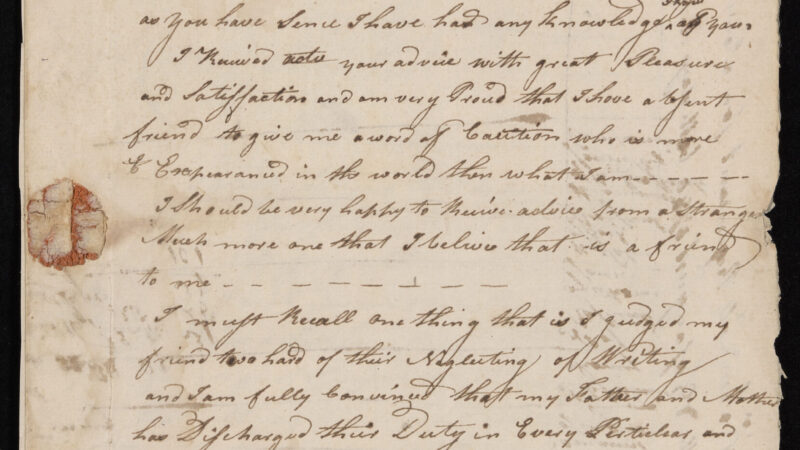 as you have Sence I have had any knowledge of you
I Received your advice with great Pleasure
and Satisfaction and am very Proud that I have absent
friend to give me a word of Caution who is more
Exspearanced in the world then what I am - - - - -
I Should be very happy to Receive advice from a Stranger
Much more one that I belive that is a friend
to me - - - - - - - -
I must Recall one thing that is I gudged my
friend two hard of their Neglecting of Writing
and I am fully Convinced that my Father and Mother
has Discharged their Duty in Every Perticlear and